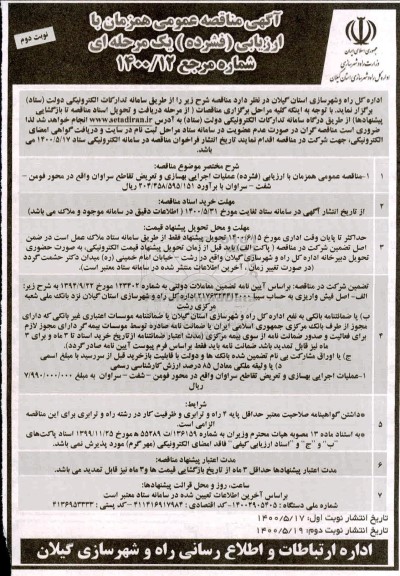 نوبت دوم
آگهی مناقصه عمومی همزمان با
ارزیابی (فشرده) یک مرحله ای
شماره مرجع ۱۴۰۰/۱۲
جمهوری اسلامی ایران
وزارت راه و شهرسازی
اداره کل راه و شهرسازی استان گیلان
اداره کل راه وشهرسازی استان گیلان در نظر دارد مناقصه شرح زیر را از طریق سامانه تدارکات الکترونیکی دولت (ستاد)
برگزار نماید. با توجه به اینکه کلیه مراحل برگزاری مناقصات ( از مرحله دریافت و تحویل اسناد مناقصه تا بازگشایی
پیشنهادها) از طریق درگاه سامانه تدارکات الکترونیکی دولت (ستاد) به آدرس www.setadiran.ir انجام خواهد شد، لذا
ضروری است مناقصه گران در صورت عدم عضویت در سامانه ستاد مراحل ثبت نام در سایت و دریافت گواهی امضای
الکترونیکی، جهت شرکت در مناقصه اقدام نمایند تاریخ انتشار فراخوان مناقصه در سامانه الکترونیکی ستاد ۱۴۰۰/۵/۱۷ می
باشد.
شرح مختصر موضوع مناقصه:
۱ ۱-مناقصه عمومی همزمان با ارزیابی (فشرده) عملیات اجرایی بهسازی و تعریض تقاطع سراوان واقع در محور فومن -
شفت - سراوان با برآورد ۲۰۴/۴۵۸/۵۹۵/۱۵۱ ریال
مهلت خرید اسناد مناقصه:
۲ از تاریخ انتشار آگهی در سامانه ستاد لغایت مورخ ۱۴۰۰/۵/۳۱ ( اطلاعات دقیق در سامانه موجود و ملاک می باشد)
مهلت و محل تحویل پیشنهاد قیمت:
حداکثر تا پایان وقت اداری مورخ ۱۴۰۰/۶/۱۵ تحویل پیشنهاد فقط از طریق سامانه ستاد ملاک عمل است در ضمن
۳ اصل تضمین شرکت در مناقصه ( پاکت الف) باید قبل از زمان تحویل پیشنهاد قیمت الکترونیکی، به صورت حضوری
تحویل دبیرخانه اداره کل راه و شهرسازی گیلان واقع در رشت - خیابان امام خمینی (ره) میدان دکتر حشمت گردد
(در صورت تغییر زمان ، آخرین اطلاعات منتشر شده در سامانه ستاد معتبر است).
تضمین شرکت در مناقصه: براساس آیین نامه تضمین معاملات دولتی به شماره ۱۲۳۴۰۲ مورخ ۱۳۹۴/۹/۲۲ به شرح زیر:
الف- اصل فیش واریزی به حساب سیبا ۲۱۷۶۳۲۳۴۱۲۰۰۰ اداره کل راه و شهرسازی استان گیلان نزد بانک ملی شعبه
مرکزی رشت
ب) یا ضمانتنامه بانکی به نفع اداره کل راه و شهرسازی استان گیلان یا ضمانتنامه موسسات اعتباری غیر بانکی که دارای
مجوز از طرف بانک مرکزی جمهوری اسلامی ایران یا ضمانت نامه صادره توسط موسسات بیمه گر دارای مجوز لازم
۴ برای فعالیت و صدور ضمانت نامه از سوی بیمه مرکزی (مدت اعتبار ضمانتنامه ازتاریخ خرید اسناد تا ۳ ماه و برای ۳
ماه نیز قابل تمدید باشد. ضمانت نامه باید فقط براساس فرم پیوست آیین نامه صادر گردد).
ج) یا اوراق مشارکت بی نام تضمین شده بانک ها و دولت با قابلیت بازخرید قبل از سررسید با مبلغ اسمی
د) یا وثیقه ملکی معادل ۸۵ درصد ارزش کارشناسی رسمی
۱-عملیات اجرایی بهسازی و تعریض تقاطع سراوان واقع در محور فومن - شفت - سراوان به مبلغ ۷/۹۹۰/۰۰۰/۰۰۰
ریال
شرایط:
*داشتن گواهینامه صلاحیت معتبر حداقل پایه ۴ راه و ترابری و ظرفیت کار در رشته راه و ترابری برای این مناقصه
۵ الزامی است.
*به استناد ماده ۱۳ مصوبه هیات محترم وزیران به شماره ۱۳۶۱۵۹/ت ۵۵۲۸۹ ه مورخ ۱۳۹۹/۱۱/۲۵ اسناد پاکت‌های
"ب" و "ج" و "اسناد ارزیابی کیفی" فاقد امضای الکترونیکی (مهر گرم) مورد پذیرش نمی باشد.
۶ مدت اعتبار پیشنهاد مناقصه:
مدت اعتبار پیشنهادها حداقل ۳ ماه از تاریخ بازگشایی قیمت ها و۳ ماه نیز قابل تمدید می باشد.
ساعت، روز و محل قرائت پیشنهادها:
۷ براساس آخرین اطلاعات تعیین شده در سامانه ستاد معتبر است
تاریخ انتشار نوبت اول: ۱۴۰۰/۵/۱۷
تاریخ انتشار نوبت دوم: ۱۴۰۰/۵/۱۹
اداره ارتباطات و اطلاع رسانی راه و شهرسازی گیلان